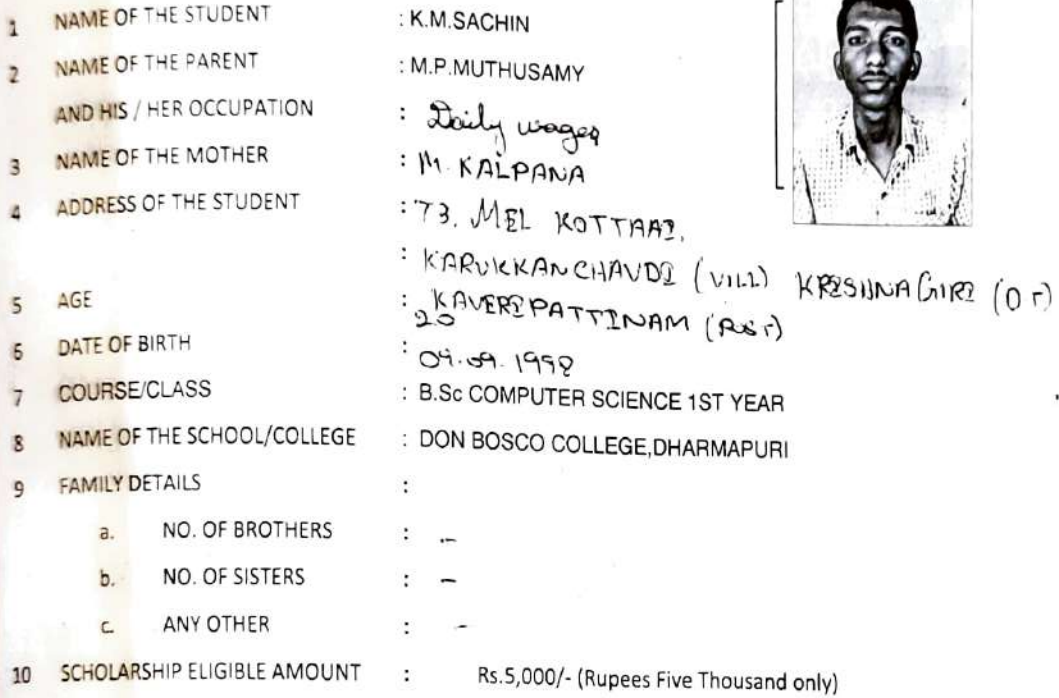 1 NAME OF THE STUDENT : K.M.SACHIN
2 NAME OF THE PARENT : M.P.MUTHUSAMY
AND HIS / HER OCCUPATION : Daily wages
3 NAME OF THE MOTHER : M. KALPANA
4 ADDRESS OF THE STUDENT : 73, MEL KOTTAAI,
: KARUKKANCHAVDI (VILL) KRISHNAGIRI (DT)
KAVERIPATTINAM (POST)
5 AGE : 20
6 DATE OF BIRTH : 04.09.1998
7 COURSE/CLASS : B.Sc COMPUTER SCIENCE 1ST YEAR
8 NAME OF THE SCHOOL/COLLEGE : DON BOSCO COLLEGE,DHARMAPURI
9 FAMILY DETAILS :
a. NO. OF BROTHERS : -
b. NO. OF SISTERS : -
c. ANY OTHER : -
10 SCHOLARSHIP ELIGIBLE AMOUNT : Rs.5,000/- (Rupees Five Thousand only)